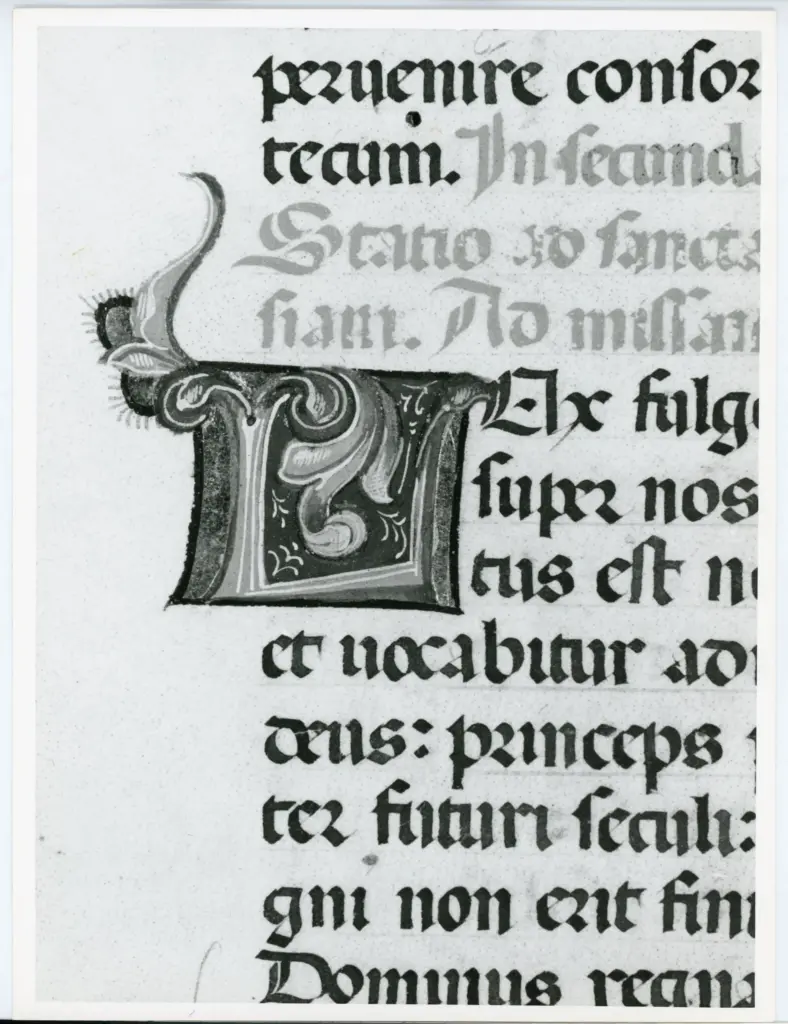 peruenire consor
tecum. In secund
Statio ad sancta
siam. Ad missam
LUx fulge
super nos
tus est n
et uocabitur ad
deus: princeps
ter futuri seculi:
gni non erit fini
Dominus regna